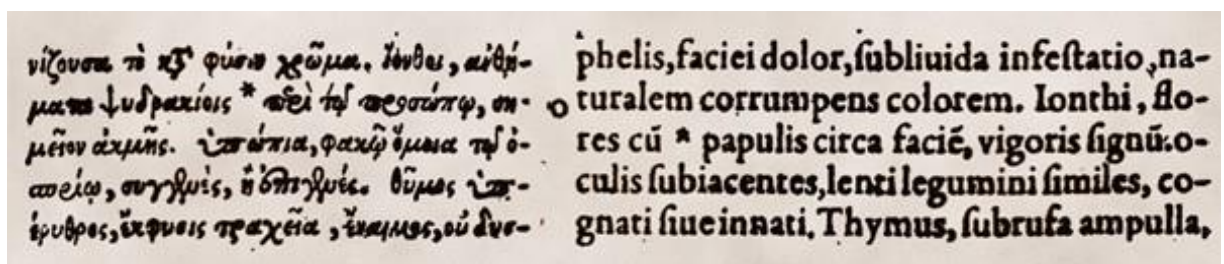 νίζουσα τὸ κτ̀ φύσιν χρῶμα. ἴονθοι, ἀνθή-
ματα ψυδρακίοις * περὶ τῷ προσώπῳ, ση-
μεῖον ἀκμῆς. ὑπώπια, φακῷ ὅμοια τῷ ὀ-
σπρίῳ, συγγενὲς, ἢ ἐπιγενές. θῦμος ὑπ-
έρυθρος, ἔκφυσις τραχεῖα, ἔναιμος, οὐ δυσ-
phelis, faciei dolor, ſubliuida infeſtatio, na-
turalem corrumpens colorem. Ionthi, flo-
res cũ * papulis circa faciẽ, vigoris ſignũ: o-
culis ſubiacentes, lenti legumini ſimiles, co-
gnati ſiue innati. Thymus, ſubrufa ampulla,